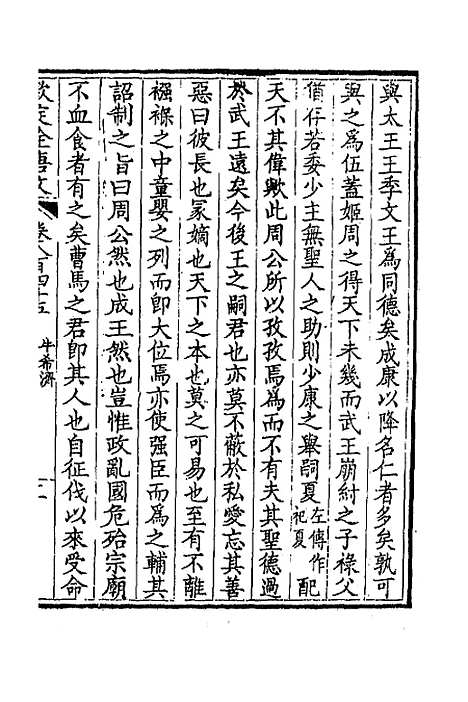 與太王王季文王爲同德矣成康以降名仁者多矣孰可
與之爲伍蓋姬周之得天下未幾而武王崩紂之子祿父
猶存若委少主無聖人之助則少康之舉嗣夏左傳作祀夏配
天不其偉歟此周公所以孜孜焉爲而不有夫其聖德過
於武王遠矣今後王之嗣君也亦莫不蔽於私愛忘其善
惡曰彼長也冢嫡也天下之本也莫之可易也至有不離
襁褓之中童嬰之列而卽大位焉亦使强臣而爲之輔其
詔制之旨曰周公然也成王然也豈惟政亂國危殆宗廟
不血食者有之矣曹馬之君卽其人也自征伐以來受命
欽定全唐文 卷八百四十五 牛希濟